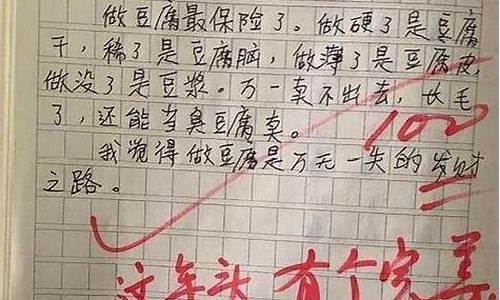 做豆腐最保险了。做硬了是豆腐
干，稀了是豆腐脑，做薄了是豆腐皮，
做没了是豆浆。万一卖不出去，长毛
了，还能当臭豆腐卖。
100
我觉得做豆腐是万无一失的发财
之路。
这年头有个完美